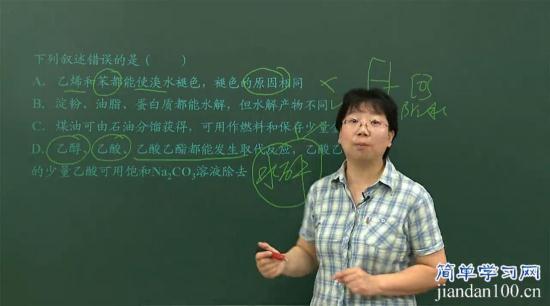 下列叙述错误的是（　　）
A．乙烯和苯都能使溴水褪色，褪色的原因相同 ×
B．淀粉、油脂、蛋白质都能水解，但水解产物不同
C．煤油可由石油分馏获得，可用作燃料和保存少量
D．乙醇、乙酸、乙酸乙酯都能发生取代反应，乙酸乙
的少量乙酸可用饱和Na₂CO₃溶液除去
水解
简单学习网
jiandan100.cn